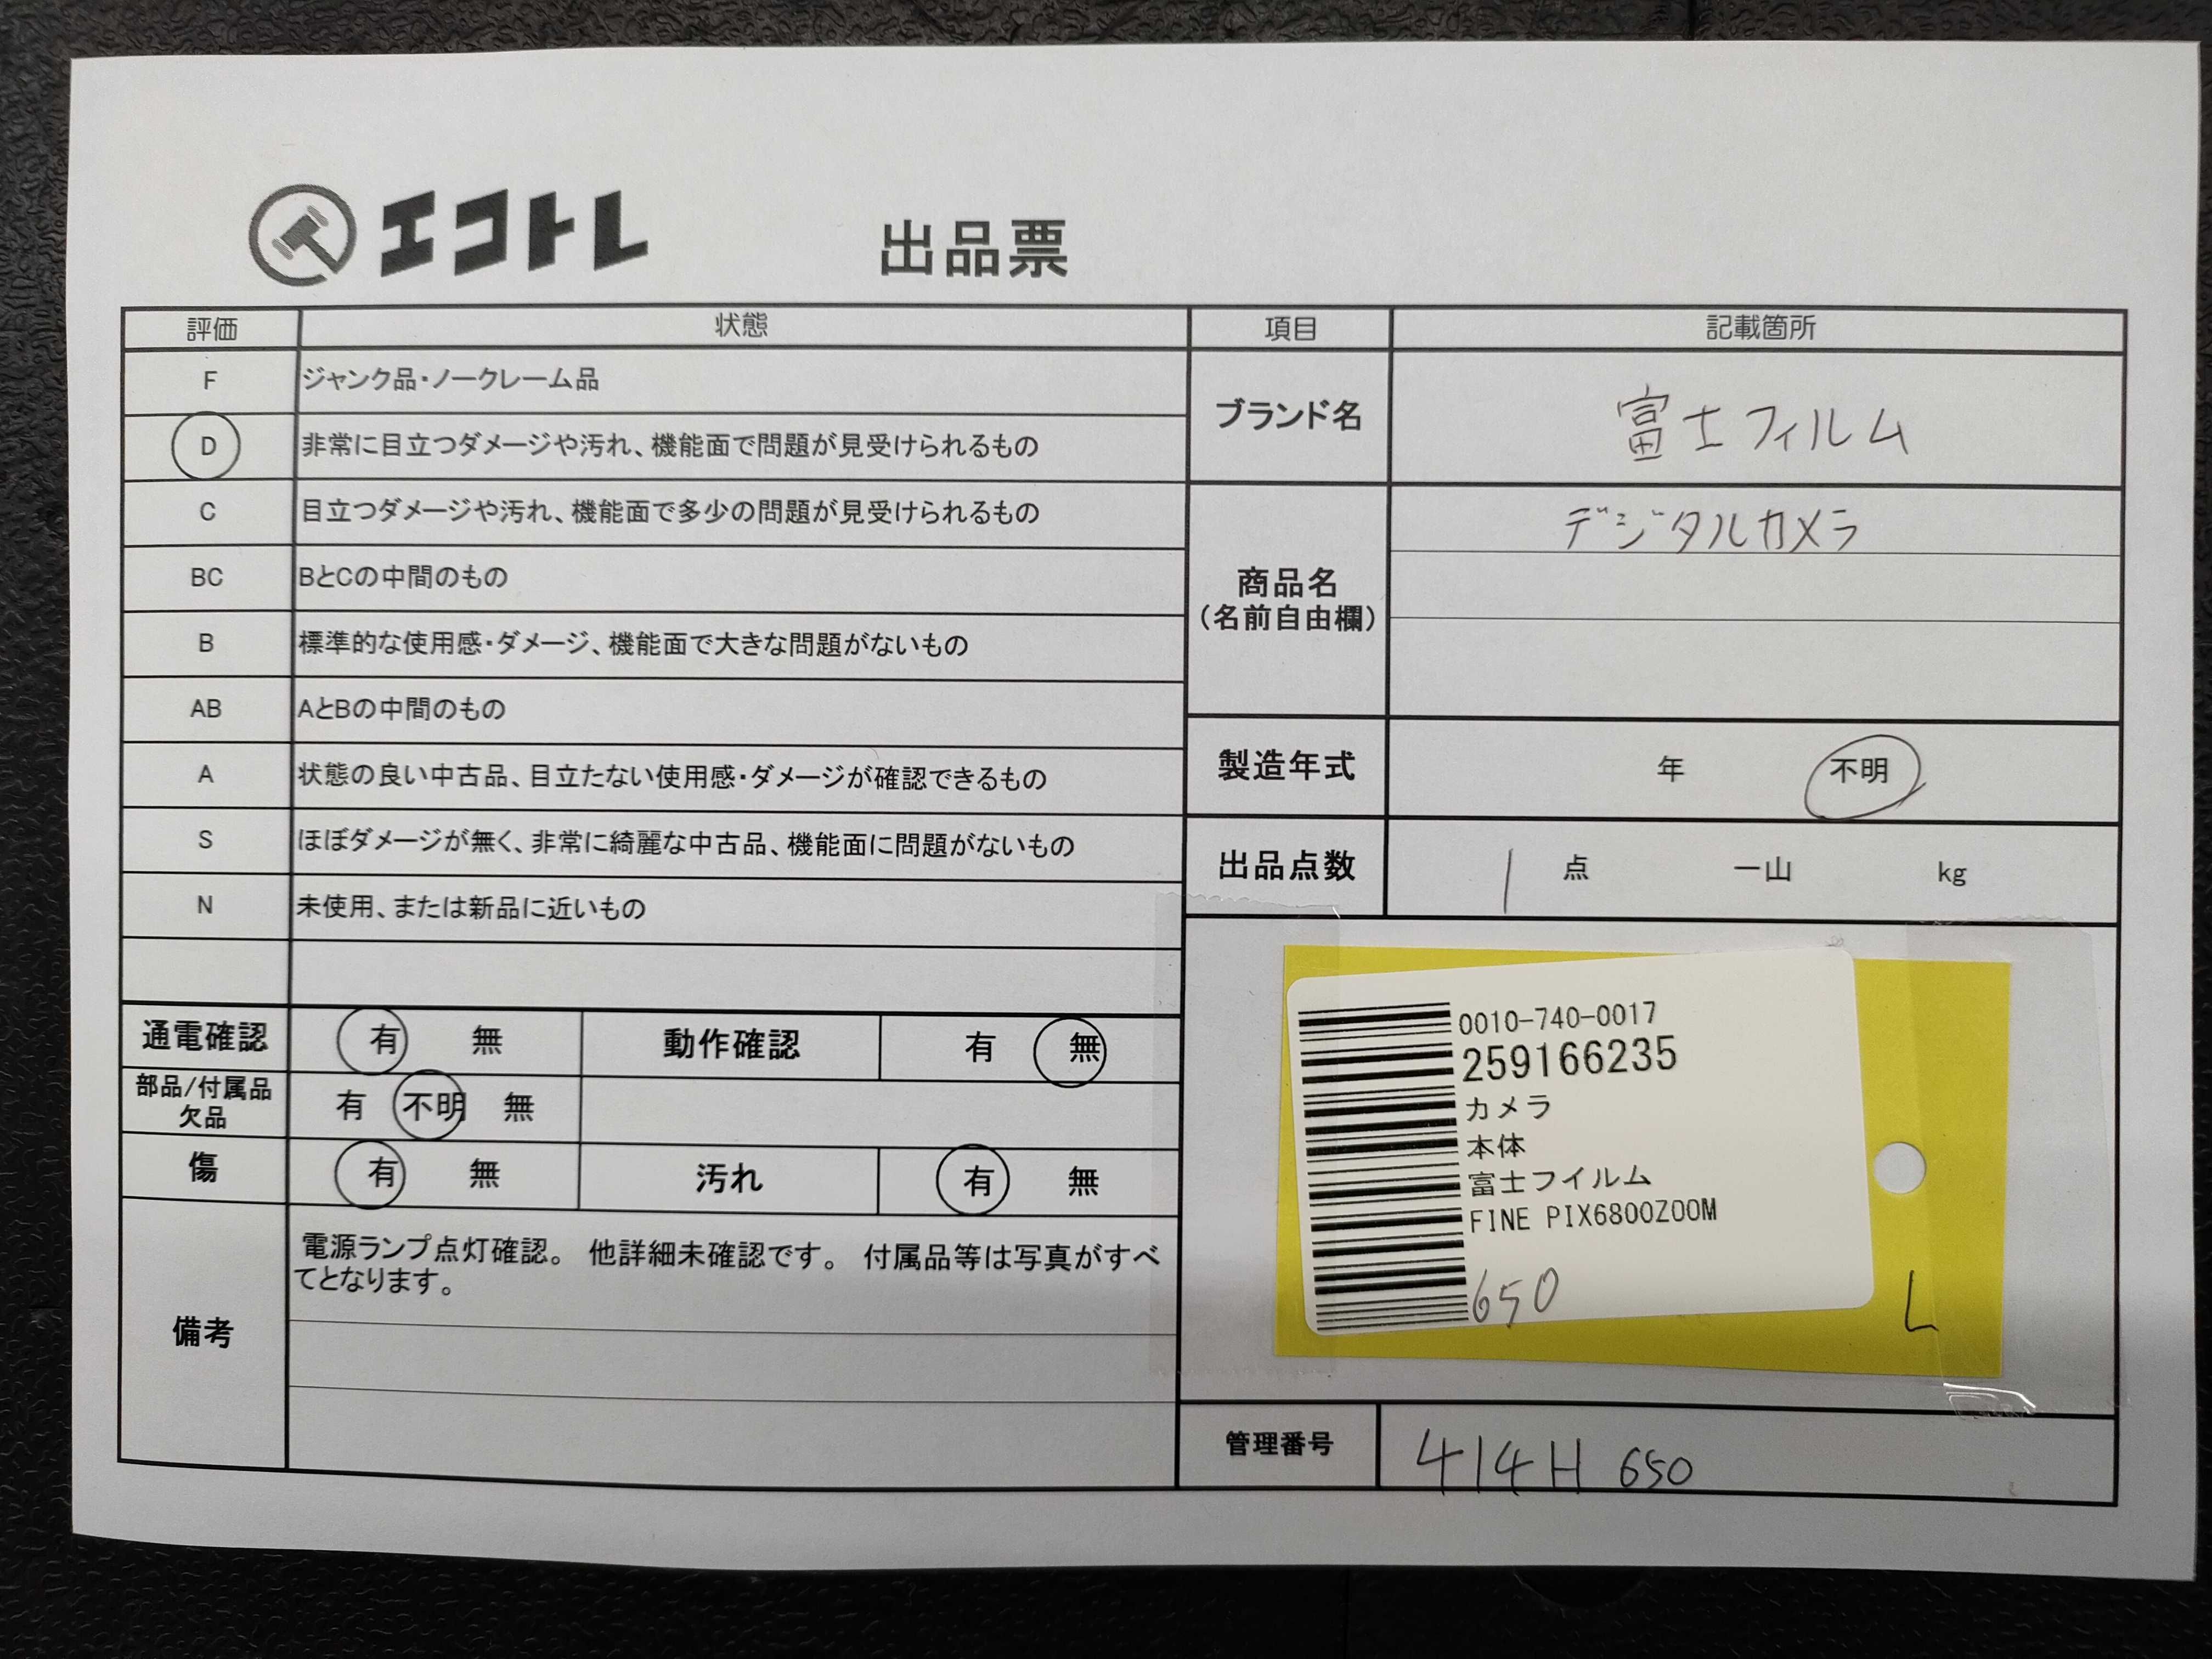 エコトレ
出品票
評価 状態
F ジャンク品・ノークレーム品
D 非常に目立つダメージや汚れ、機能面で問題が見受けられるもの
C 目立つダメージや汚れ、機能面で多少の問題が見受けられるもの
BC BとCの中間のもの
B 標準的な使用感・ダメージ、機能面で大きな問題がないもの
AB AとBの中間のもの
A 状態の良い中古品、目立たない使用感・ダメージが確認できるもの
S ほぼダメージが無く、非常に綺麗な中古品、機能面に問題がないもの
N 未使用、または新品に近いもの
通電確認 有 無 動作確認 有 無
部品/付属品
欠品
有 不明 無
傷 有 無 汚れ 有 無
備考
電源ランプ点灯確認。 他詳細未確認です。 付属品等は写真がすべ
てとなります。
項目 記載箇所
ブランド名 富士フィルム
商品名
(名前自由欄)
デジタルカメラ
製造年式 年 不明
出品点数 1 点 一山 kg
0010-740-0017
259166235
カメラ
本体
富士フイルム
FINE PIX6800ZOOM
650
L
管理番号 414H 650